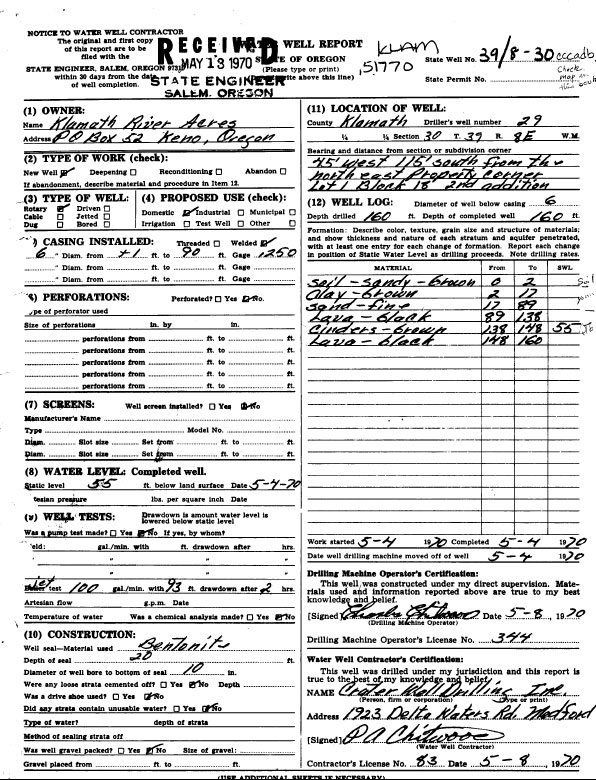 NOTICE TO WATER WELL CONTRACTOR
The original and first copy
of this report are to be
filed with the
STATE ENGINEER, SALEM, OREGON 97310
within 30 days from the date
of well completion.
RECEIVED
MAY 13 1970
STATE ENGINEER
SALEM, OREGON
WATER WELL REPORT
STATE OF OREGON
(Please type or print)
(Do not write above this line)
KLAM
51770
State Well No. 39/8-30 cccadb
State Permit No.
Check
map
(1) OWNER:
Name Klamath River Acres
Address PO Box 52 Keno, Oregon
(2) TYPE OF WORK (check):
New Well ☑ Deepening ☐ Reconditioning ☐ Abandon ☐
If abandonment, describe material and procedure in Item 12.
(3) TYPE OF WELL:
Rotary ☑ Driven ☐
Cable ☐ Jetted ☐
Dug ☐ Bored ☐
(4) PROPOSED USE (check):
Domestic ☑ Industrial ☐ Municipal ☐
Irrigation ☐ Test Well ☐ Other ☐
) CASING INSTALLED: Threaded ☐ Welded ☑
6 " Diam. from +1 ft. to 90 ft. Gage .250
" Diam. from ft. to ft. Gage
" Diam. from ft. to ft. Gage
(6) PERFORATIONS: Perforated? ☐ Yes ☑ No.
ype of perforator used
Size of perforations in. by in.
perforations from ft. to ft.
perforations from ft. to ft.
perforations from ft. to ft.
perforations from ft. to ft.
perforations from ft. to ft.
(7) SCREENS: Well screen installed? ☐ Yes ☑ No
Manufacturer's Name
Type Model No.
Diam. Slot size Set from ft. to ft.
Diam. Slot size Set from ft. to ft.
(8) WATER LEVEL: Completed well.
Static level 55 ft. below land surface Date 5-4-70
tesian pressure lbs. per square inch Date
(9) WELL TESTS: Drawdown is amount water level is
lowered below static level
Was a pump test made? ☐ Yes ☑ No If yes, by whom?
eld: gal./min. with ft. drawdown after hrs.
" " "
" " "
Jet test 100 gal./min. with 93 ft. drawdown after 2 hrs.
Artesian flow g.p.m. Date
Temperature of water Was a chemical analysis made? ☐ Yes ☑ No
(10) CONSTRUCTION:
Well seal—Material used Bentonite
Depth of seal 20 ft.
Diameter of well bore to bottom of seal 10 in.
Were any loose strata cemented off? ☐ Yes ☑ No Depth
Was a drive shoe used? ☐ Yes ☑ No
Did any strata contain unusable water? ☐ Yes ☑ No
Type of water? depth of strata
Method of sealing strata off
Was well gravel packed? ☐ Yes ☑ No Size of gravel:
Gravel placed from ft. to ft.
(11) LOCATION OF WELL:
County Klamath Driller's well number 29
¼ ¼ Section 30 T. 39 R. 8E W.M.
Bearing and distance from section or subdivision corner
45' west 115' south from the
northeast Property corner
Lot 1 Block 18 2nd addition
(12) WELL LOG: Diameter of well below casing 6
Depth drilled 160 ft. Depth of completed well 160 ft.
Formation: Describe color, texture, grain size and structure of materials;
and show thickness and nature of each stratum and aquifer penetrated,
with at least one entry for each change of formation. Report each change
in position of Static Water Level as drilling proceeds. Note drilling rates.
MATERIAL From To SWL
Soil - Sandy - brown 0 2
Clay - brown 2 17
Sand - fine 17 89
Lava - black 89 138
Cinders - brown 138 148 55
Lava - black 148 160
Work started 5-4 1970 Completed 5-4 1970
Date well drilling machine moved off of well 5-4 1970
Drilling Machine Operator's Certification:
This well was constructed under my direct supervision. Mate-
rials used and information reported above are true to my best
knowledge and belief.
[Signed] Date 5-8, 1970
(Drilling Machine Operator)
Drilling Machine Operator's License No. 344
Water Well Contractor's Certification:
This well was drilled under my jurisdiction and this report is
true to the best of my knowledge and belief.
NAME Crater Well Drilling Inc.
(Person, firm or corporation) (Type or print)
Address 1923 Delta Waters Rd. Medford
[Signed] P A Chitwood
(Water Well Contractor)
Contractor's License No. 83 Date 5-8, 1970
(USE ADDITIONAL SHEETS IF NECESSARY)